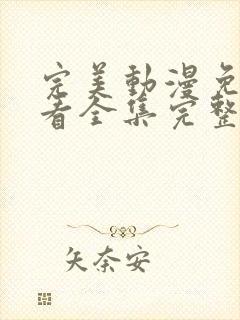 完美動漫免
看全集完整
矢奈安